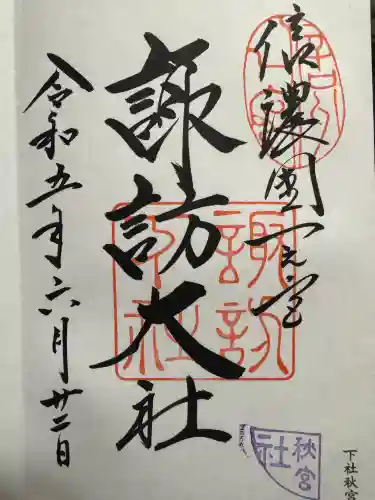 信濃國一之宮
諏訪大社
令和五年六月廿二日
諏訪
大社
秋宮
社
下社秋宮